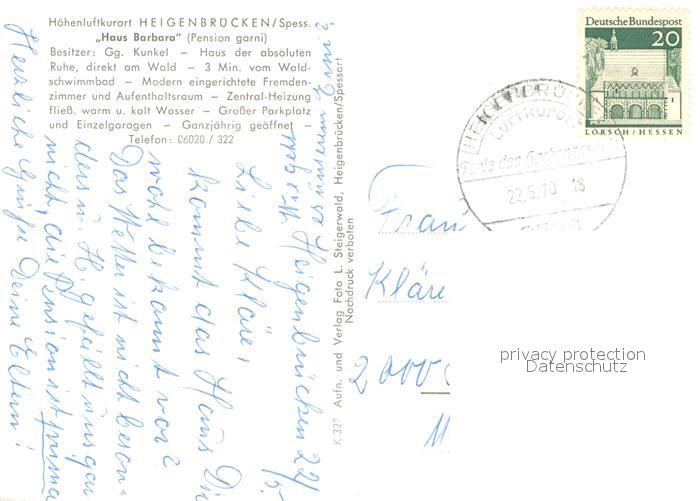 Höhenluftkurort HEIGENBRÜCKEN/Spess.
„Haus Barbara“ (Pension garni)
Besitzer: Gg. Kunkel – Haus der absoluten
Ruhe, direkt am Wald – 3 Min. vom Wald-
schwimmbad – Modern eingerichtete Fremden-
zimmer und Aufenthaltsraum – Zentral-Heizung
fließ. warm u. kalt Wasser – Großer Parkplatz
und Einzelgaragen – Ganzjährig geöffnet –
Telefon: 06020 / 322
Heigenbrücken 22/5.
Liebe Kläre,
kommt das Haus Dir
wohl bekannt vor?
Das Wetter ist nicht beson-
ders u. H. gefällt uns gar
nicht, die Pension ist prima
Herzliche Grüße Deine Eltern!
K 327 Aufn. und Verlag Foto L. Steigerwald, Heigenbrücken/Spessart
Nachdruck verboten
Deutsche Bundespost
20
LORSCH / HESSEN
HEIGENBRÜCKEN
Luftkurort
Perle des Hochspessarts
22.5.70. 18
Frau
Kläre
2000
privacy protection
Datenschutz